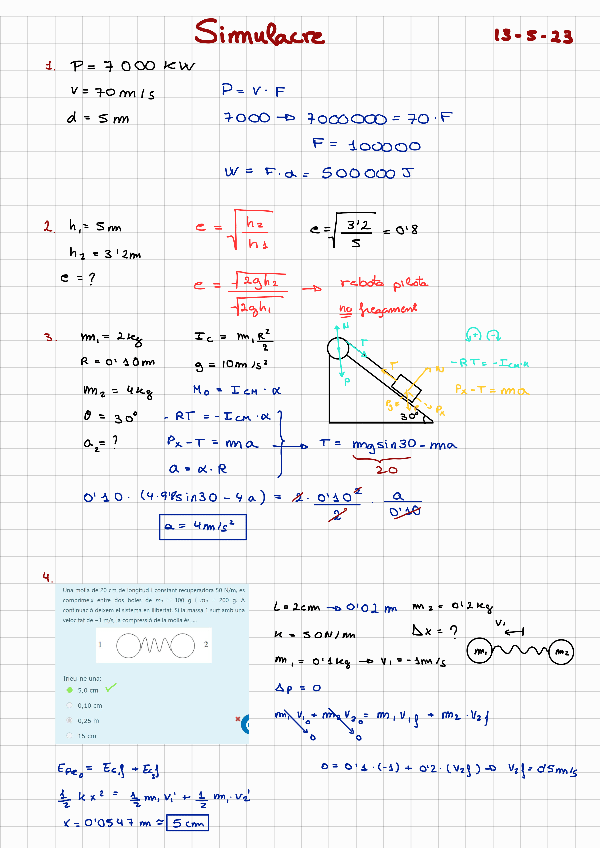 Simulacre
13-5-23
1. P = 7000 KW
v = 70 m/s
d = 5 m
P = v · F
7000 → 7000000 = 70 · F
F = 100000
W = F · d = 500000 J
2. h₁ = 5m
h₂ = 3'2m
e = ?
e = √(h₂/h₁)
e = √(3'2/5) = 0'8
e = √2gh₂ / √2gh₁ → rebota pilota
no fregament
3. m₁ = 2kg
R = 0'10m
m₂ = 4kg
θ = 30°
a₂ = ?
I_C = m₁ R²/2
g = 10m/s²
M₀ = I_CM · α
- RT = - I_CM · α
Px - T = ma
a = α · R
T = mgsin30 - ma
20
N
T
P
T
N
Px
30°
(+)
-RT = -I_CM · α
Px - T = ma
0'10 · (4·9'8sin30 - 4a) = 2 · 0'10²/2 · a/0'10
a = 4m/s²
4.
Una molla de 20 cm de longitud i constant recuperadora 50 N/m, es
comprimeix entre dos boles de m₁ = 100 g i m₂ = 200 g. A
continuació deixem el sistema en llibertat. Si la massa 1 surt amb una
velocitat de -1 m/s, la compressió de la molla és ...
1
2
Trieu-ne una:
5,0 cm ✓
0,10 cm
0,25 m
15 cm
L = 2cm → 0'02 m
m₂ = 0'2kg
k = 50N/m
Δx = ?
m₁ = 0'1kg → v₁ = -1m/s
Δp = 0
v₁
m₁
m₂
m₁ v₁₀ + m₂ v₂₀ = m₁ v₁f + m₂ · v₂f
0
0
0 = 0'1 · (-1) + 0'2 · (v₂f) → v₂f = 0'5m/s
Epe₀ = Ec₁f + Ec₂f
1/2 k x² = 1/2 m₁ v₁² + 1/2 m₁ · v₂²
x = 0'0547 m ≈ 5 cm